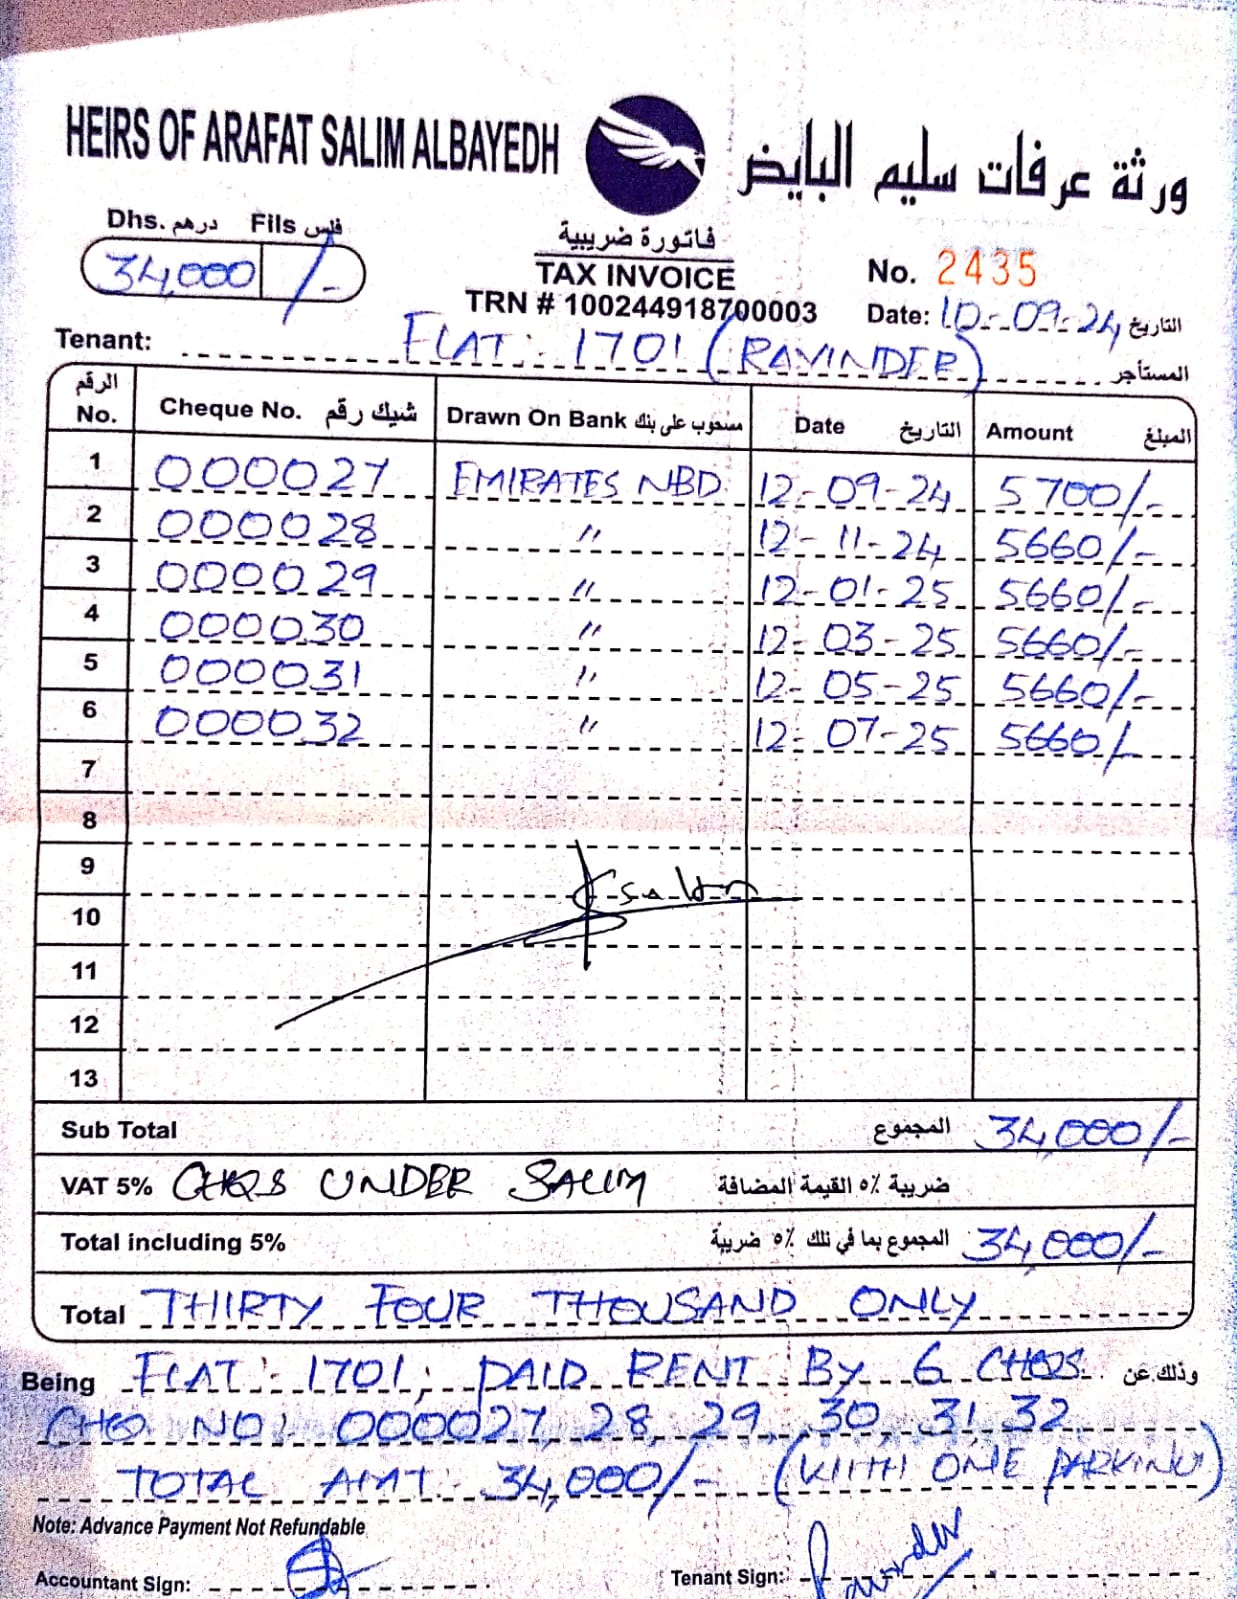 HEIRS OF ARAFAT SALIM ALBAYEDH ورثة عرفات سليم البايض
Dhs. درهم Fils فلس
34,000 /-
فاتورة ضريبية
TAX INVOICE
TRN # 100244918700003
No. 2435
Date: 10-09-24 التاريخ
Tenant: FLAT: 1701 (RAVINDER) المستأجر
الرقم No. Cheque No. شيك رقم Drawn On Bank مسحوب على بنك Date التاريخ Amount المبلغ
1 000027 EMIRATES NBD 12-09-24 5700/-
2 000028 " 12-11-24 5660/-
3 000029 " 12-01-25 5660/-
4 000030 " 12-03-25 5660/-
5 000031 " 12-05-25 5660/-
6 000032 " 12-07-25 5660/-
7
8
9
10
11
12
13
Sub Total المجموع 34,000/-
VAT 5% CHQS UNDER SALIM ضريبة ٥% القيمة المضافة
Total including 5% المجموع بما في تلك ٥% ضريبة 34,000/-
Total THIRTY FOUR THOUSAND ONLY
Being FLAT: 1701, PAID RENT BY 6 CHQS. وذلك عن
CHQ NO: 000027, 28, 29, 30, 31, 32
TOTAL AMT: 34,000/- (WITH ONE PARKING)
Note: Advance Payment Not Refundable
Accountant Sign:
Tenant Sign: Ravinder